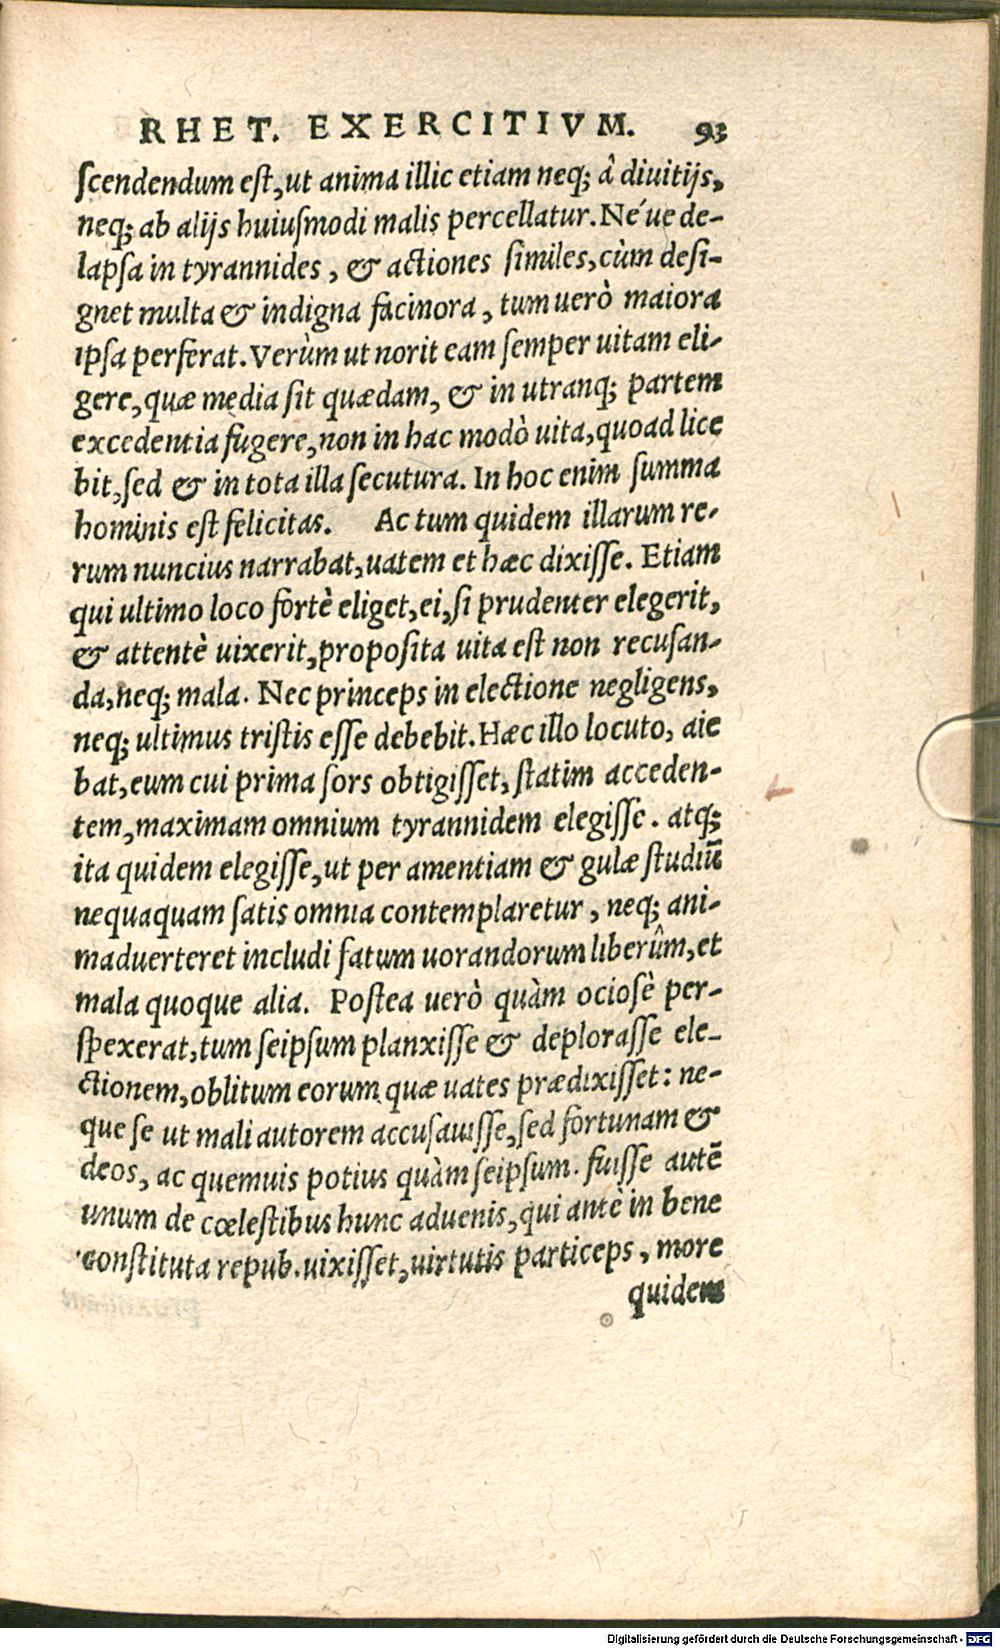 RHET. EXERCITIVM. 93
ſcendendum eſt, ut anima illic etiam neq; â diuitijs,
neq; ab alijs huiuſmodi malis percellatur. Né ue de-
lapſa in tyrannides, & actiones ſimiles, cùm deſi-
gnet multa & indigna facinora, tum uerò maiora
ipſa perferat. Verùm ut norit eam ſemper uitam eli-
gere, quæ media ſit quædam, & in utranq; partem
excedentia fugere, non in hac modò uita, quoad lice
bit, ſed & in tota illa ſecutura. In hoc enim ſumma
hominis eſt felicitas. Ac tum quidem illarum re-
rum nuncius narrabat, uatem et hæc dixiſſe. Etiam
qui ultimo loco fortè eliget, ei, ſi prudenter elegerit,
& attentè uixerit, propoſita uita eſt non recuſan-
da, neq; mala. Nec princeps in electione negligens,
neq; ultimus triſtis eſſe debebit. Hæc illo locuto, aie
bat, eum cui prima ſors obtigiſſet, ſtatim acceden-
tem, maximam omnium tyrannidem elegiſſe. atq;
ita quidem elegiſſe, ut per amentiam & gulæ ſtudiū
nequaquam ſatis omnia contemplaretur, neq; ani-
maduerteret includi fatum uorandorum liberûm, et
mala quoque alia. Poſtea uerò quàm ocioſè per-
ſpexerat, tum ſeipſum planxiſſe & deploraſſe ele-
ctionem, oblitum eorum quæ uates prædixiſſet: ne-
que ſe ut mali autorem accuſauiſſe, ſed fortunam &
deos, ac quemuis potius quàm ſeipſum. fuiſſe autē
unum de cœleſtibus hunc aduenis, qui antè in bene
conſtituta repub. uixiſſet, uirtutis particeps, more
quidem
Digitalisierung gefördert durch die Deutsche Forschungsgemeinschaft - DFG